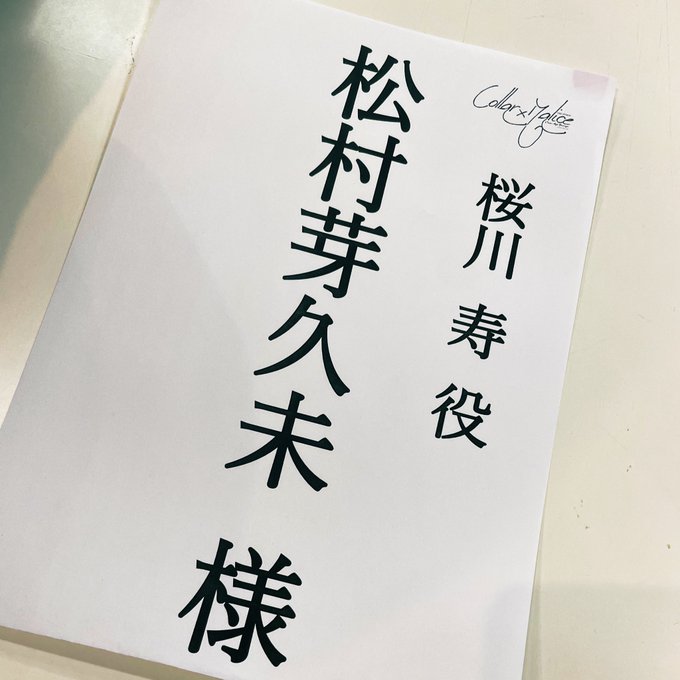 Collar×Malice
桜川 寿 役
松村芽久未 様